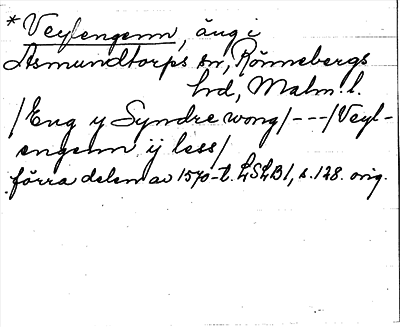 *Veylengenn, äng i
Asmundtorps sn, Rönnebergs
hrd, Malm. l.
/Eng y Syndre wong/---/Veyl-
engenn ij less/
förra delen av 1570-t. LSLB1, s. 128. orig.